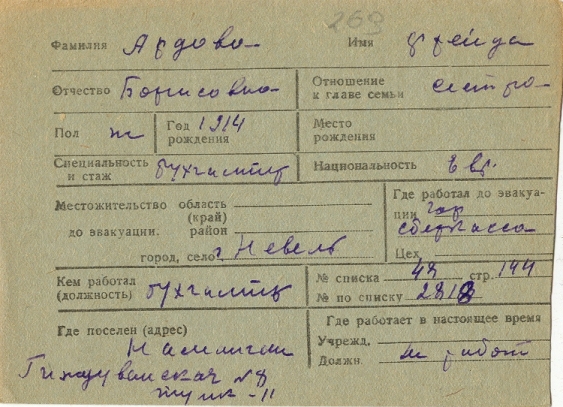 269
Фамилия Ардова Имя Фрейда
Отчество Борисовна Отношение к главе семьи сестра
Пол ж Год рождения 1914 Место рождения
Специальность и стаж бухгалтер Национальность Евр.
Местожительство область (край)
до эвакуации. район
город, село г. Невель
Где работал до эвакуации Гор сберкасса
Цех
Кем работал (должность) бухгалтер
№ списка 48 стр. 144
№ по списку 2818
Где поселен (адрес) Наманган
№ 8
Где работает в настоящее время
Учрежд.
Должн. не работ